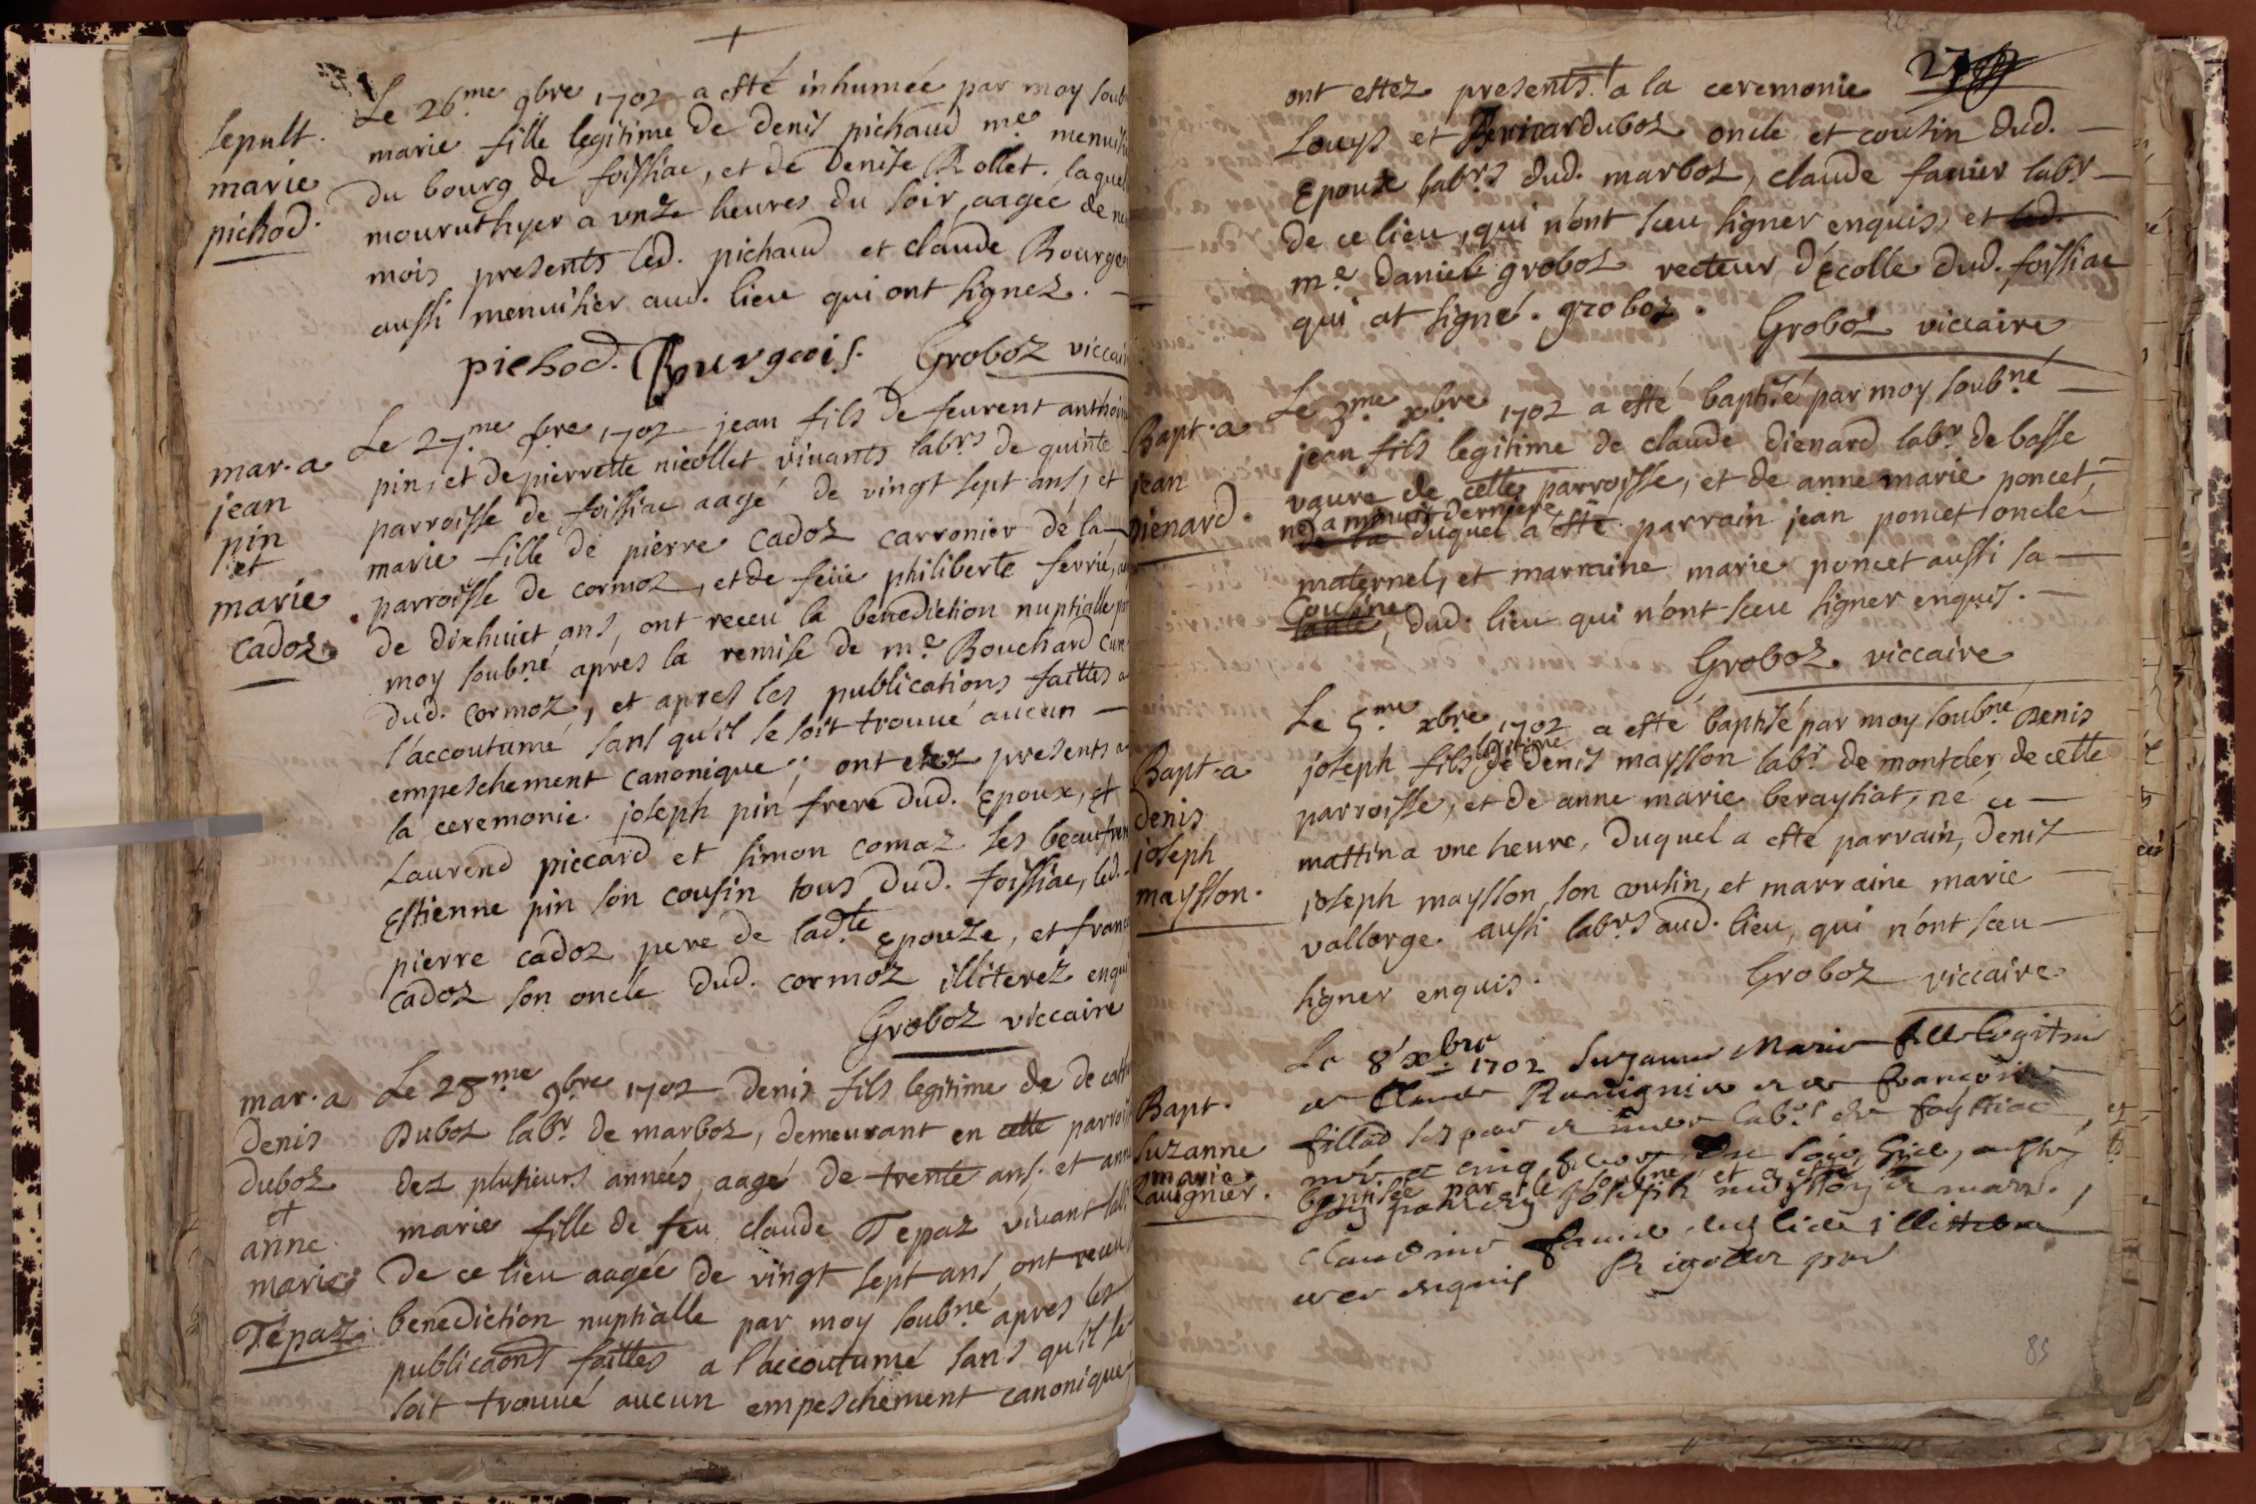 Le 26.me 9bre 1702 a esté inhumée par moy soub
sepult.
marie fille legitime de denis pichaud me. menuis
marie
du bourg de foissiac, et de denise Rollet. laquel
pichod.
mourut hyer a unze heures du soir, aagée de ne
mois presents led. pichaud et claude Bourge
aussi menuisier aud. lieu qui ont signez.
pichod. Bourgeois. Groboz viccai
Le 27.me 9bre 1702 jean fils de feurent anthoi
mar. a
jean
pin
et
marie
cadoz
pin, et de pierrette nicollet vivants labrs de quinte
parroisse de foissiac aagé de vingt sept ans, et
marie fille de pierre cadoz carronier de la
parroisse de cormoz, et de feüe philiberte ferrié,
de dixhuict ans, ont receu la benediction nuptialle p
moy soubné apres la remise de me. Bouchard cur
dud. cormoz, et apres les publications faittes a
l'accoutumé sans qu'il se soit trouvé aucun
empeschement canonique; ont estez presents a
la ceremonie. joseph pin frere dud. Epoux, et
Laurend piccard et simon comaz ses beaufrer
Estienne pin son cousin tous dud. foissiac, led.
pierre cadoz pere de ladte Epouze, et fran
cadoz son oncle dud. cormoz illiterez enqui
Groboz viccaire
mar. a
denis
duboz
et
anne
marie
Tepaz
Le 28.me 9bre 1702 denis fils legitime de de
Duboz labr de marboz, demeurant en cette parroi
dez plusieurs années, aagé de trente ans, et ann
marie fille de feu claude Tepaz vivant
de ce lieu aagée de vingt sept ans ont receu
benediction nuptialle par moy soubné apres les
publicaons faittes a l'accoutumé sans qu'il se
soit trouvé aucun empeschement canonique,
27
ont estez presents a la ceremonie
Louys et Duboz oncle et cousin dud.
Epoux labrs dud. marboz, claude favier labr
de ce lieu, qui n'ont sceu signer enquis, et led.
me. daniel groboz recteur d'Ecolle dud. foissiac
qui at signé. groboz.
Groboz viccaire
Bapt. a
jean
Dienard.
Le 3me xbre 1702 a esté baptisé par moy soubné
jean fils legitime de claude dienard labr de basse
vaure de cette parroisse, et de anne marie poncet,
né a minuit derniere
de la duquel a esté parrain jean poncet oncle
maternel, et marraine marie poncet aussi sa
cousine
tante, dud. lieu qui n'ont sceu signer enquis.
Groboz viccaire
Bapt. a
denis
joseph
maysson.
Le 5.me xbre 1702 a esté baptisé par moy soubné Denis
legitime
joseph fils de denis maysson labr de montcler de cette
parroisse, et de anne marie beraystiat, né ce
mattin a une heure, duquel a esté parrain, denis
joseph maysson son cousin, et marraine marie
vallorge. aussi labrs aud. lieu, qui n'ont sceu
signer enquis.
Groboz viccaire
Bapt.
Suzanne
marie
Ravignier.
Le 8 xbre 1702 Suzanne Marie fille legitime
de Claude Ravignier et de françoise
fillod ses pere et mere labrs de foyssiac
née a cinq heures du soir hier, a esté
baptisée par le soubné et a esté
son parrain joseph maysson et marr.
Claudine favier dud lieu illitterez
de ce enquis Rigollet pbre
85